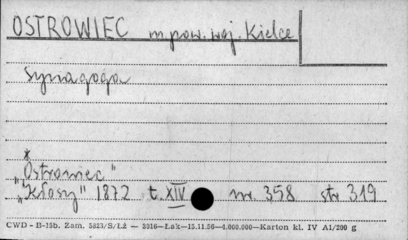 OSTROWIEC m pow. woj. Kielce
Synagoga
x
"Ostrowiec"
"Kłosy" 1872 t. XIV nr. 358 str 319
CWD - B-15b. Zam. 5823/S/Lż — 2016—Łak—15.11.56—4.000.000—Karton kl. IV A1/200 g